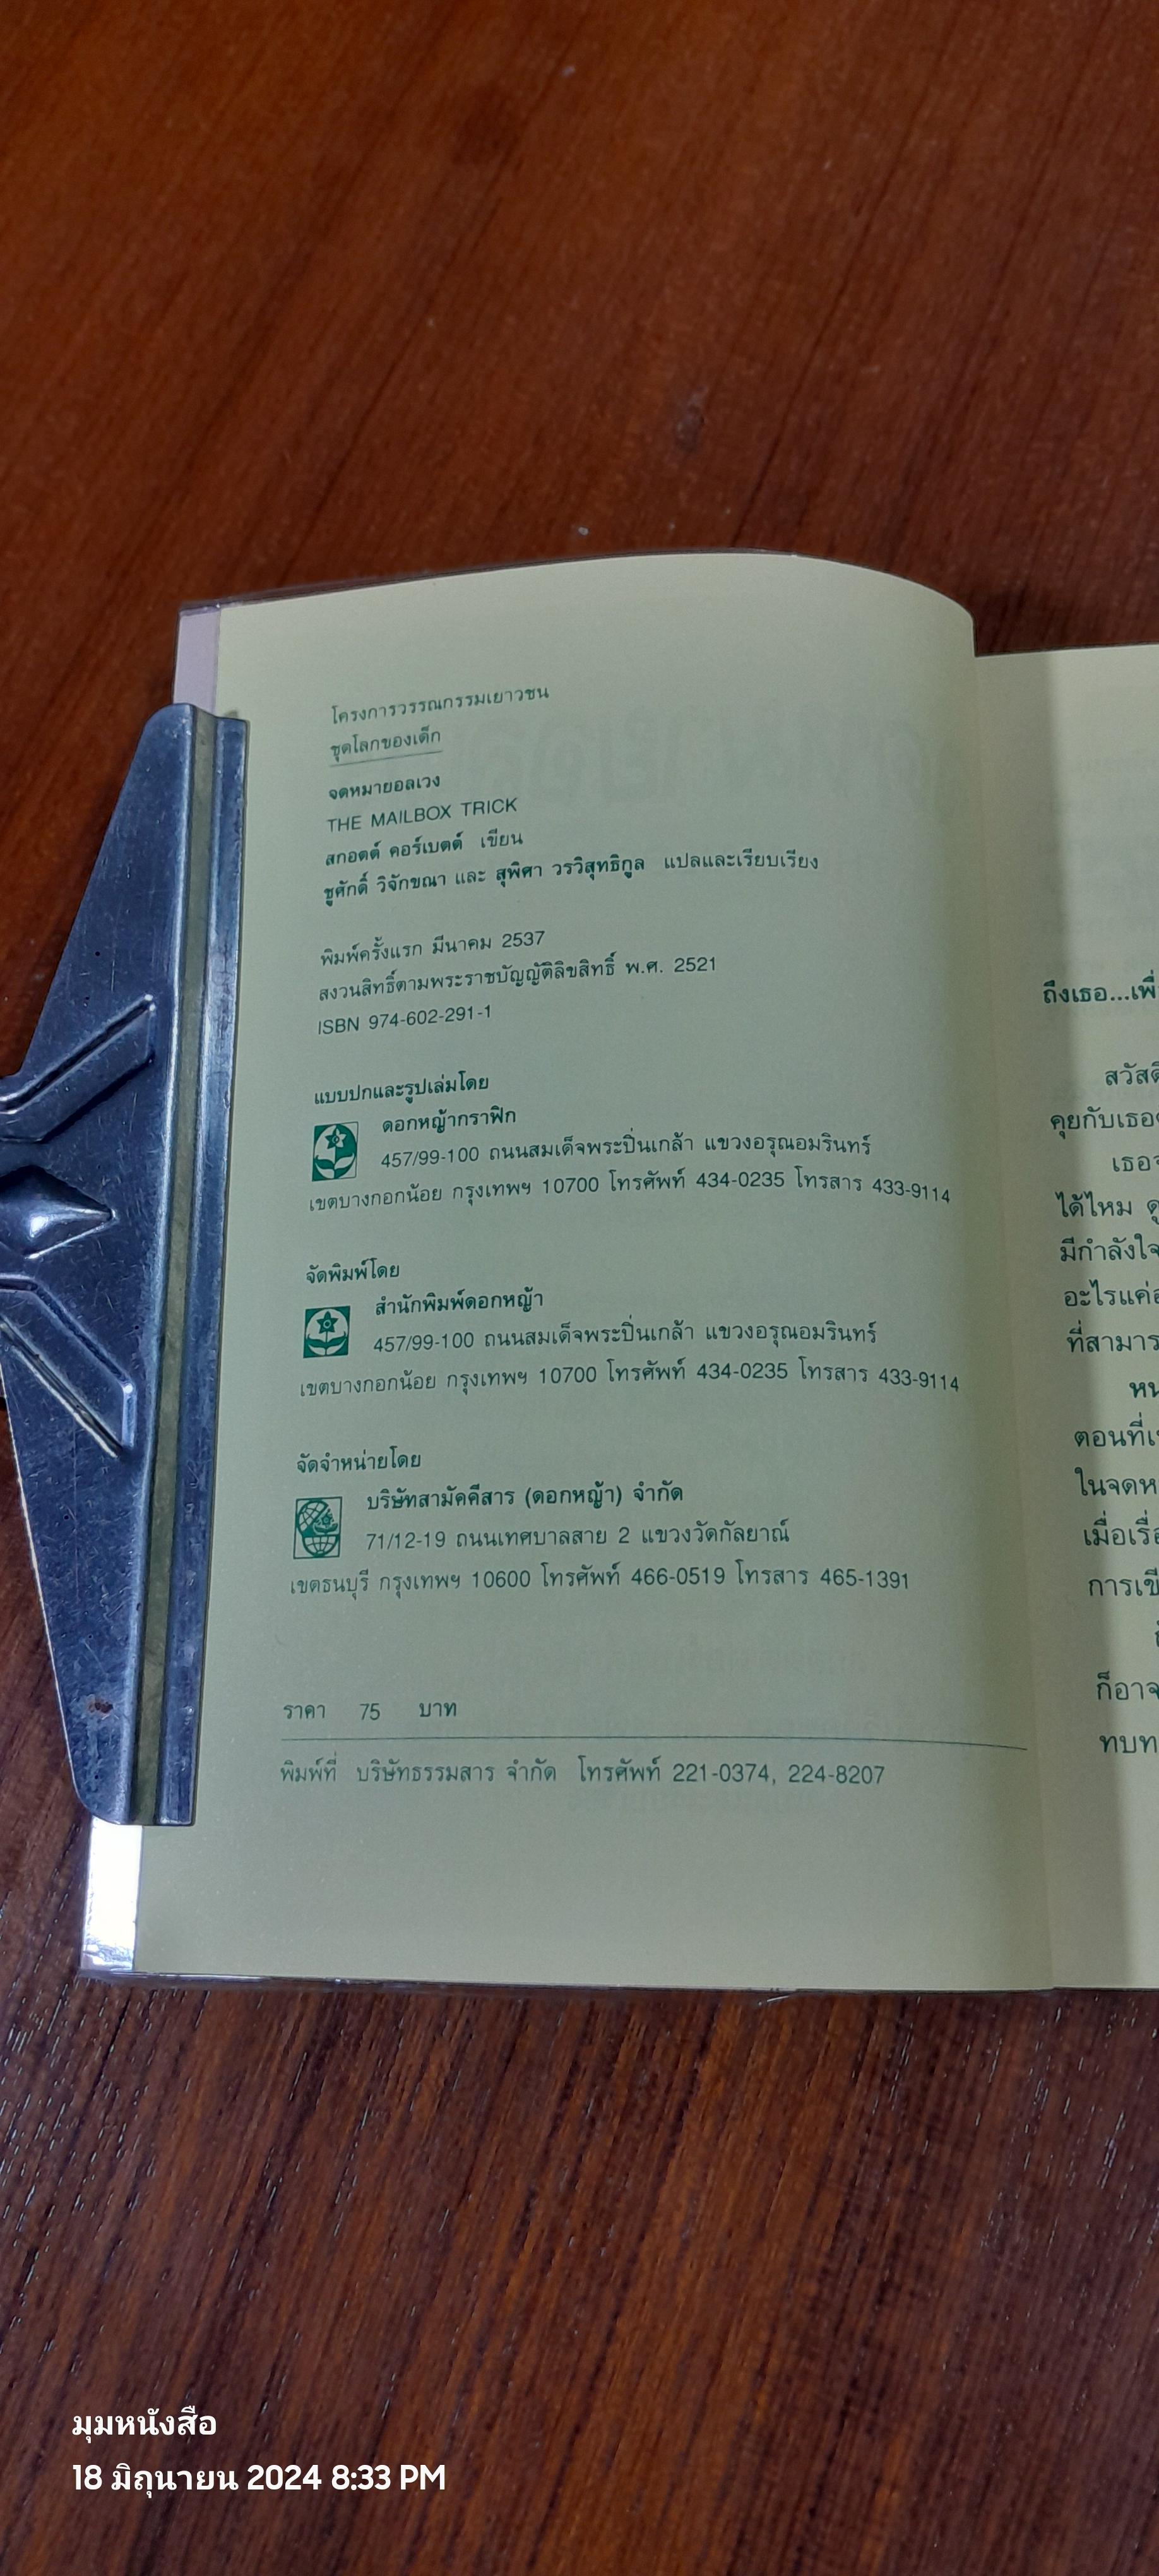 โครงการวรรณกรรมเยาวชน
ชุดโลกของเด็ก
จดหมายอลเวง
THE MAILBOX TRICK
สกอตต์ คอร์เบตต์ เขียน
ชูศักดิ์ วิจักขณา และ สุพิศา วรวิสุทธิกูล แปลและเรียบเรียง
พิมพ์ครั้งแรก มีนาคม 2537
สงวนสิทธิ์ตามพระราชบัญญัติลิขสิทธิ์ พ.ศ. 2521
ISBN 974-602-291-1
แบบปกและรูปเล่มโดย
ดอกหญ้ากราฟิก
457/99-100 ถนนสมเด็จพระปิ่นเกล้า แขวงอรุณอมรินทร์
เขตบางกอกน้อย กรุงเทพฯ 10700 โทรศัพท์ 434-0235 โทรสาร 433-9114
จัดพิมพ์โดย
สำนักพิมพ์ดอกหญ้า
457/99-100 ถนนสมเด็จพระปิ่นเกล้า แขวงอรุณอมรินทร์
เขตบางกอกน้อย กรุงเทพฯ 10700 โทรศัพท์ 434-0235 โทรสาร 433-9114
จัดจำหน่ายโดย
บริษัทสามัคคีสาร (ดอกหญ้า) จำกัด
71/12-19 ถนนเทศบาลสาย 2 แขวงวัดกัลยาณ์
เขตธนบุรี กรุงเทพฯ 10600 โทรศัพท์ 466-0519 โทรสาร 465-1391
ราคา 75 บาท
พิมพ์ที่ บริษัทธรรมสาร จำกัด โทรศัพท์ 221-0374, 224-8207
ถึงเธอ...เพื่
สวัสดี
คุยกับเธอ
เธอ
ได้ไหม ดู
มีกำลังใจ
อะไรแค่
ที่สามาร
หน
ตอนที่เ
ในจดห
เมื่อเรื่
การเขี
ก็อาจ
ทบท
มุมหนังสือ
18 มิถุนายน 2024 8:33 PM